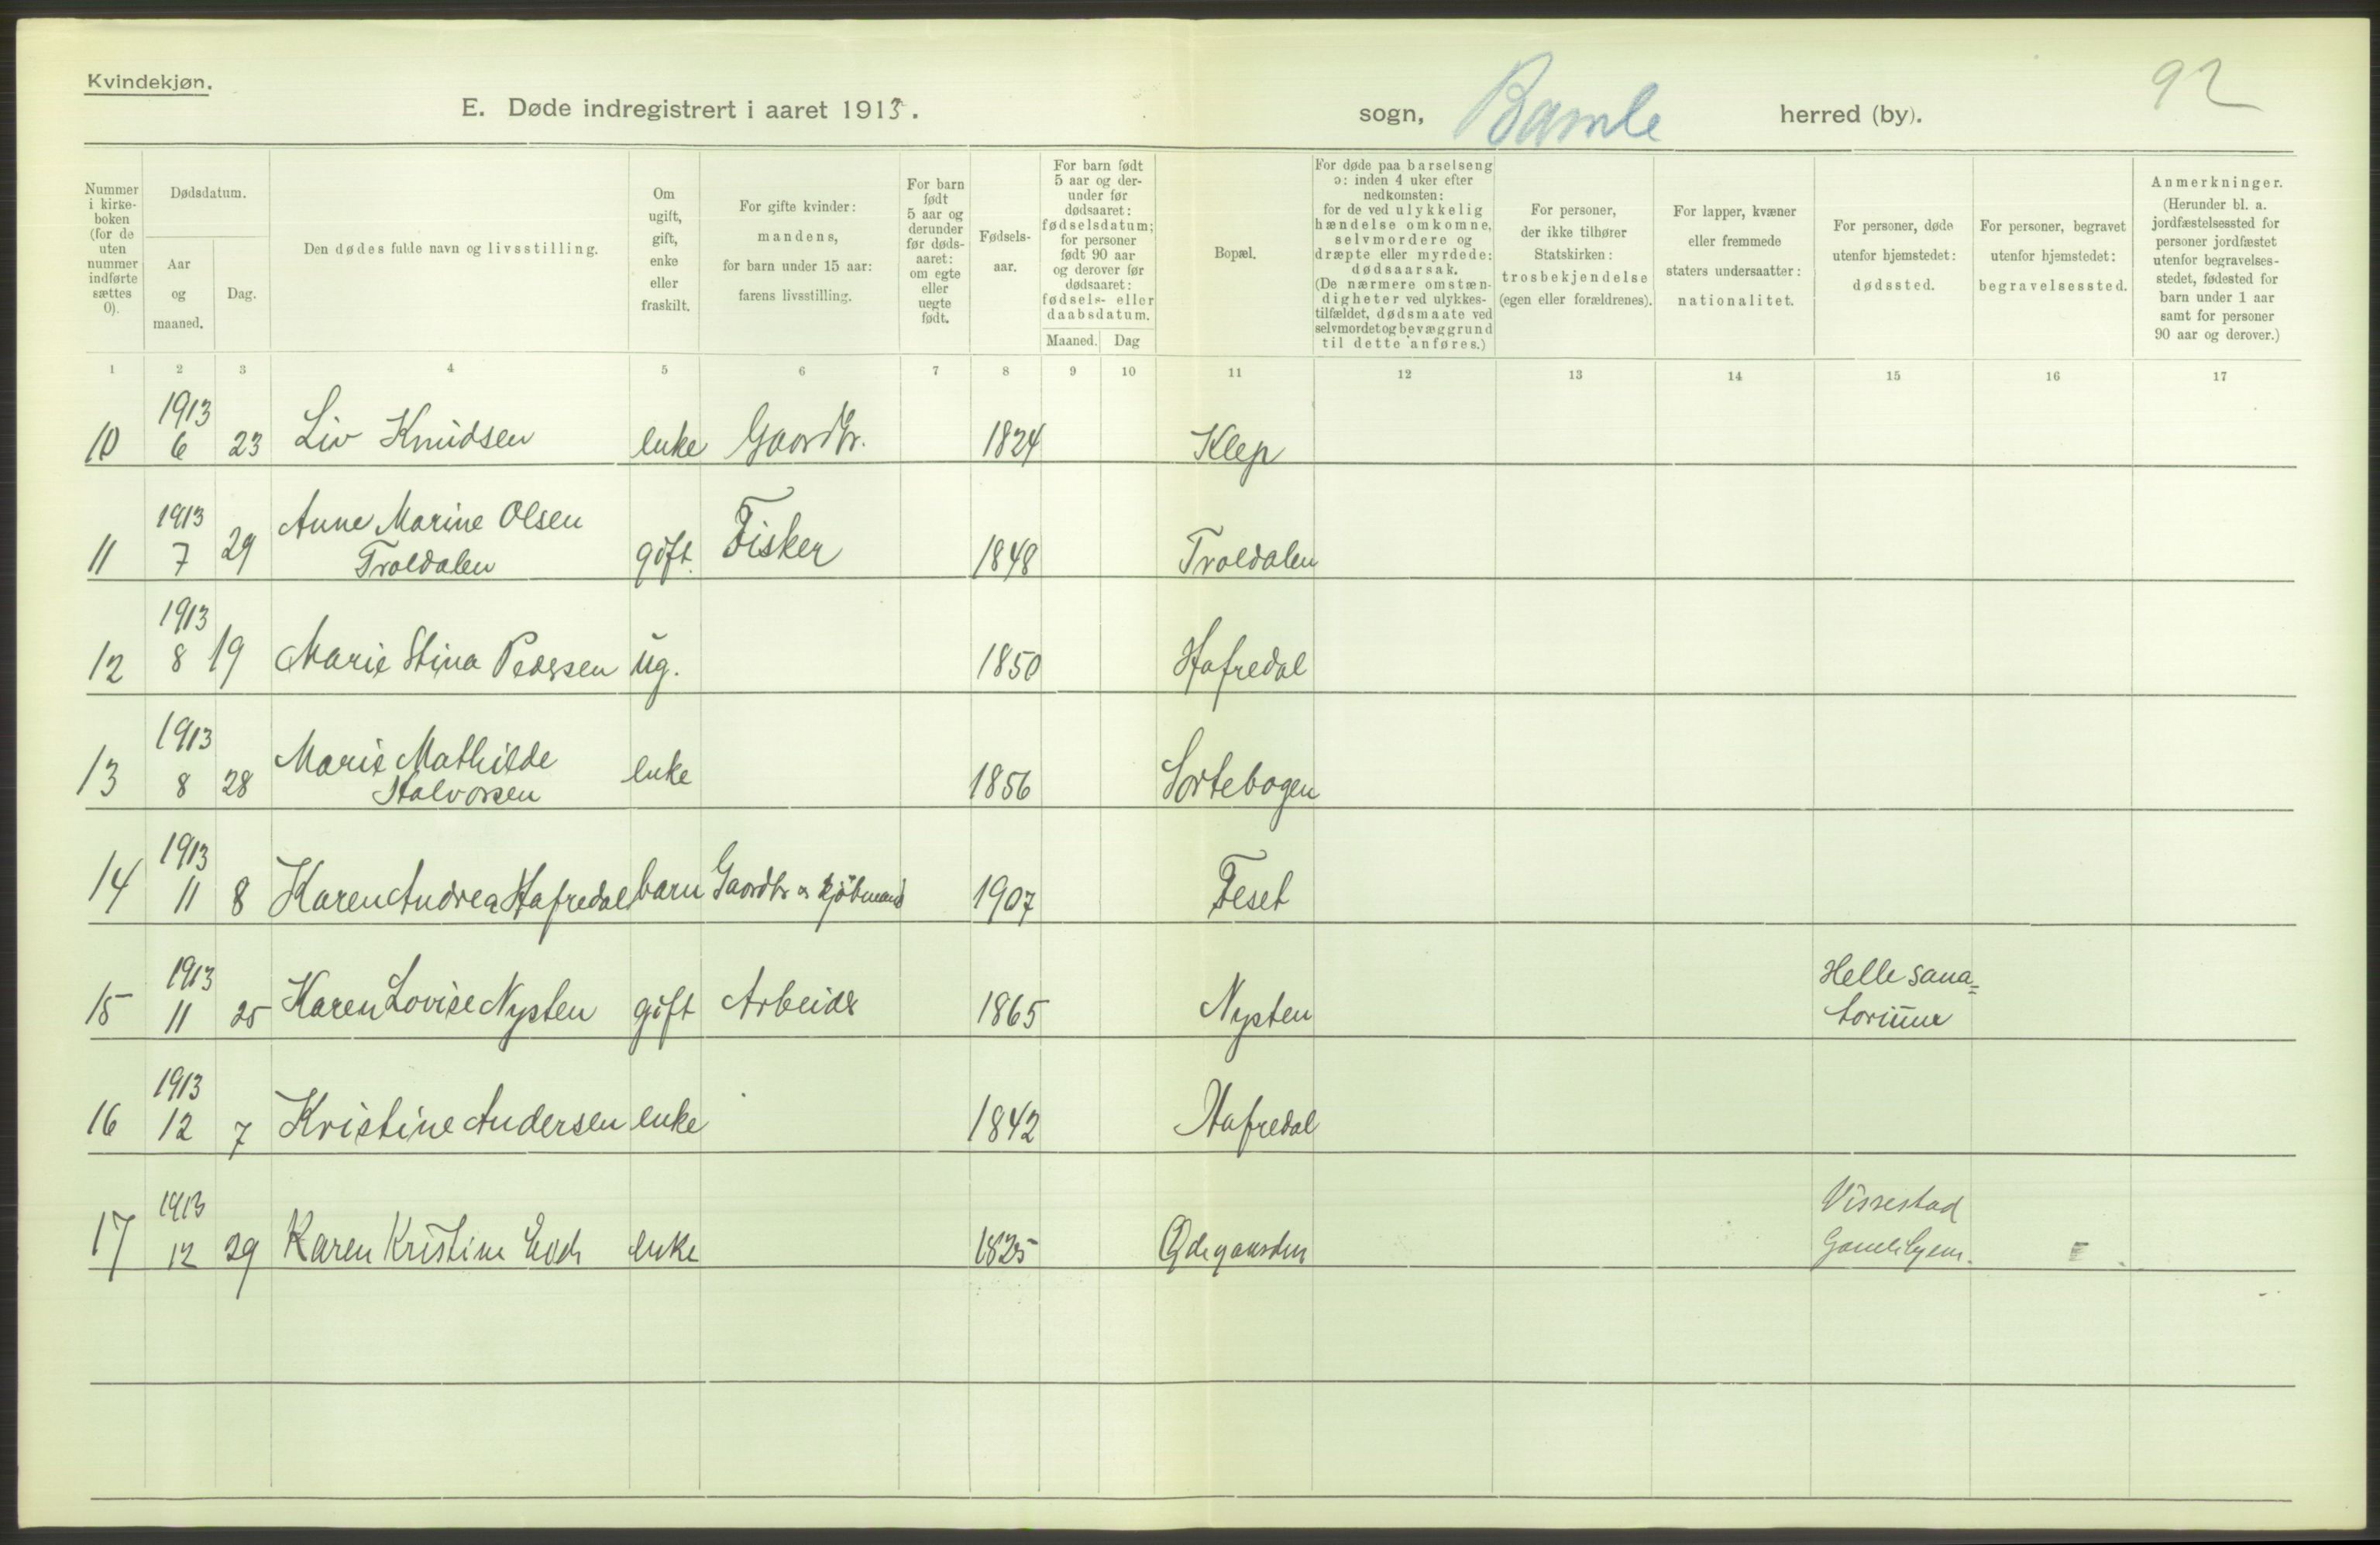 Kvindekjøn.
E. Døde indregistrert i aaret 1913.
sogn, Bamle herred (by).
92
Nummer i kirkeboken (for de uten nummer indførte sættes 0).
Dødsdatum.
Aar og maaned.
Dag.
Den dødes fulde navn og livsstilling.
Om ugift, gift, enke eller fraskilt.
For gifte kvinder: mandens, for barn under 15 aar: farens livsstilling.
For barn født 5 aar og derunder før dødsaaret: om egte eller uegte født.
Fødselsaar.
For barn født 5 aar og derunder før dødsaaret: fødselsdatum; for personer født 90 aar og derover før dødsaaret: fødsels- eller daabsdatum.
Maaned. Dag
Bopæl.
For døde paa barselseng ɔ: inden 4 uker efter nedkomsten: for de ved ulykkelig hændelse omkomne, selvmordere og dræpte eller myrdede: dødsaarsak. (De nærmere omstændigheter ved ulykkestilfældet, dødsmaate ved selvmordet og bevæggrund til dette anføres.)
For personer, der ikke tilhører Statskirken: trosbekjendelse (egen eller forældrenes).
For lapper, kvæner eller fremmede staters undersaatter: nationalitet.
For personer, døde utenfor hjemstedet: dødssted.
For personer, begravet utenfor hjemstedet: begravelsessted.
Anmerkninger. (Herunder bl. a. jordfæstelsessted for personer jordfæstet utenfor begravelsesstedet, fødested for barn under 1 aar samt for personer 90 aar og derover.)
1 2 3 4 5 6 7 8 9 10 11 12 13 14 15 16 17
10 1913 6 23 Liv Knudsen enke Gaardbr. 1824 Klep
11 1913 7 29 Anne Marine Olsen
Troldalen gift. Fisker 1848 Troldalen
12 1913 8 19 Marie Stina Pedersen ug. 1850 Hafredal
13 1913 8 28 Marie Mathilde
Halvorsen enke 1856 Sortebogen
14 1913 11 8 Karen Andrea Hafredal barn Gaardbr & kjøbmand 1907 Feset
15 1913 11 25 Karen Lovise Nysten gift Arbeider 1865 Nysten Helle sana=
torium
16 1913 12 7 Kristine Andersen enke 1842 Hafredal
17 1913 12 29 Karen Kristine enke 1825 Ødegaarden Vissestad
Gamlehjem.